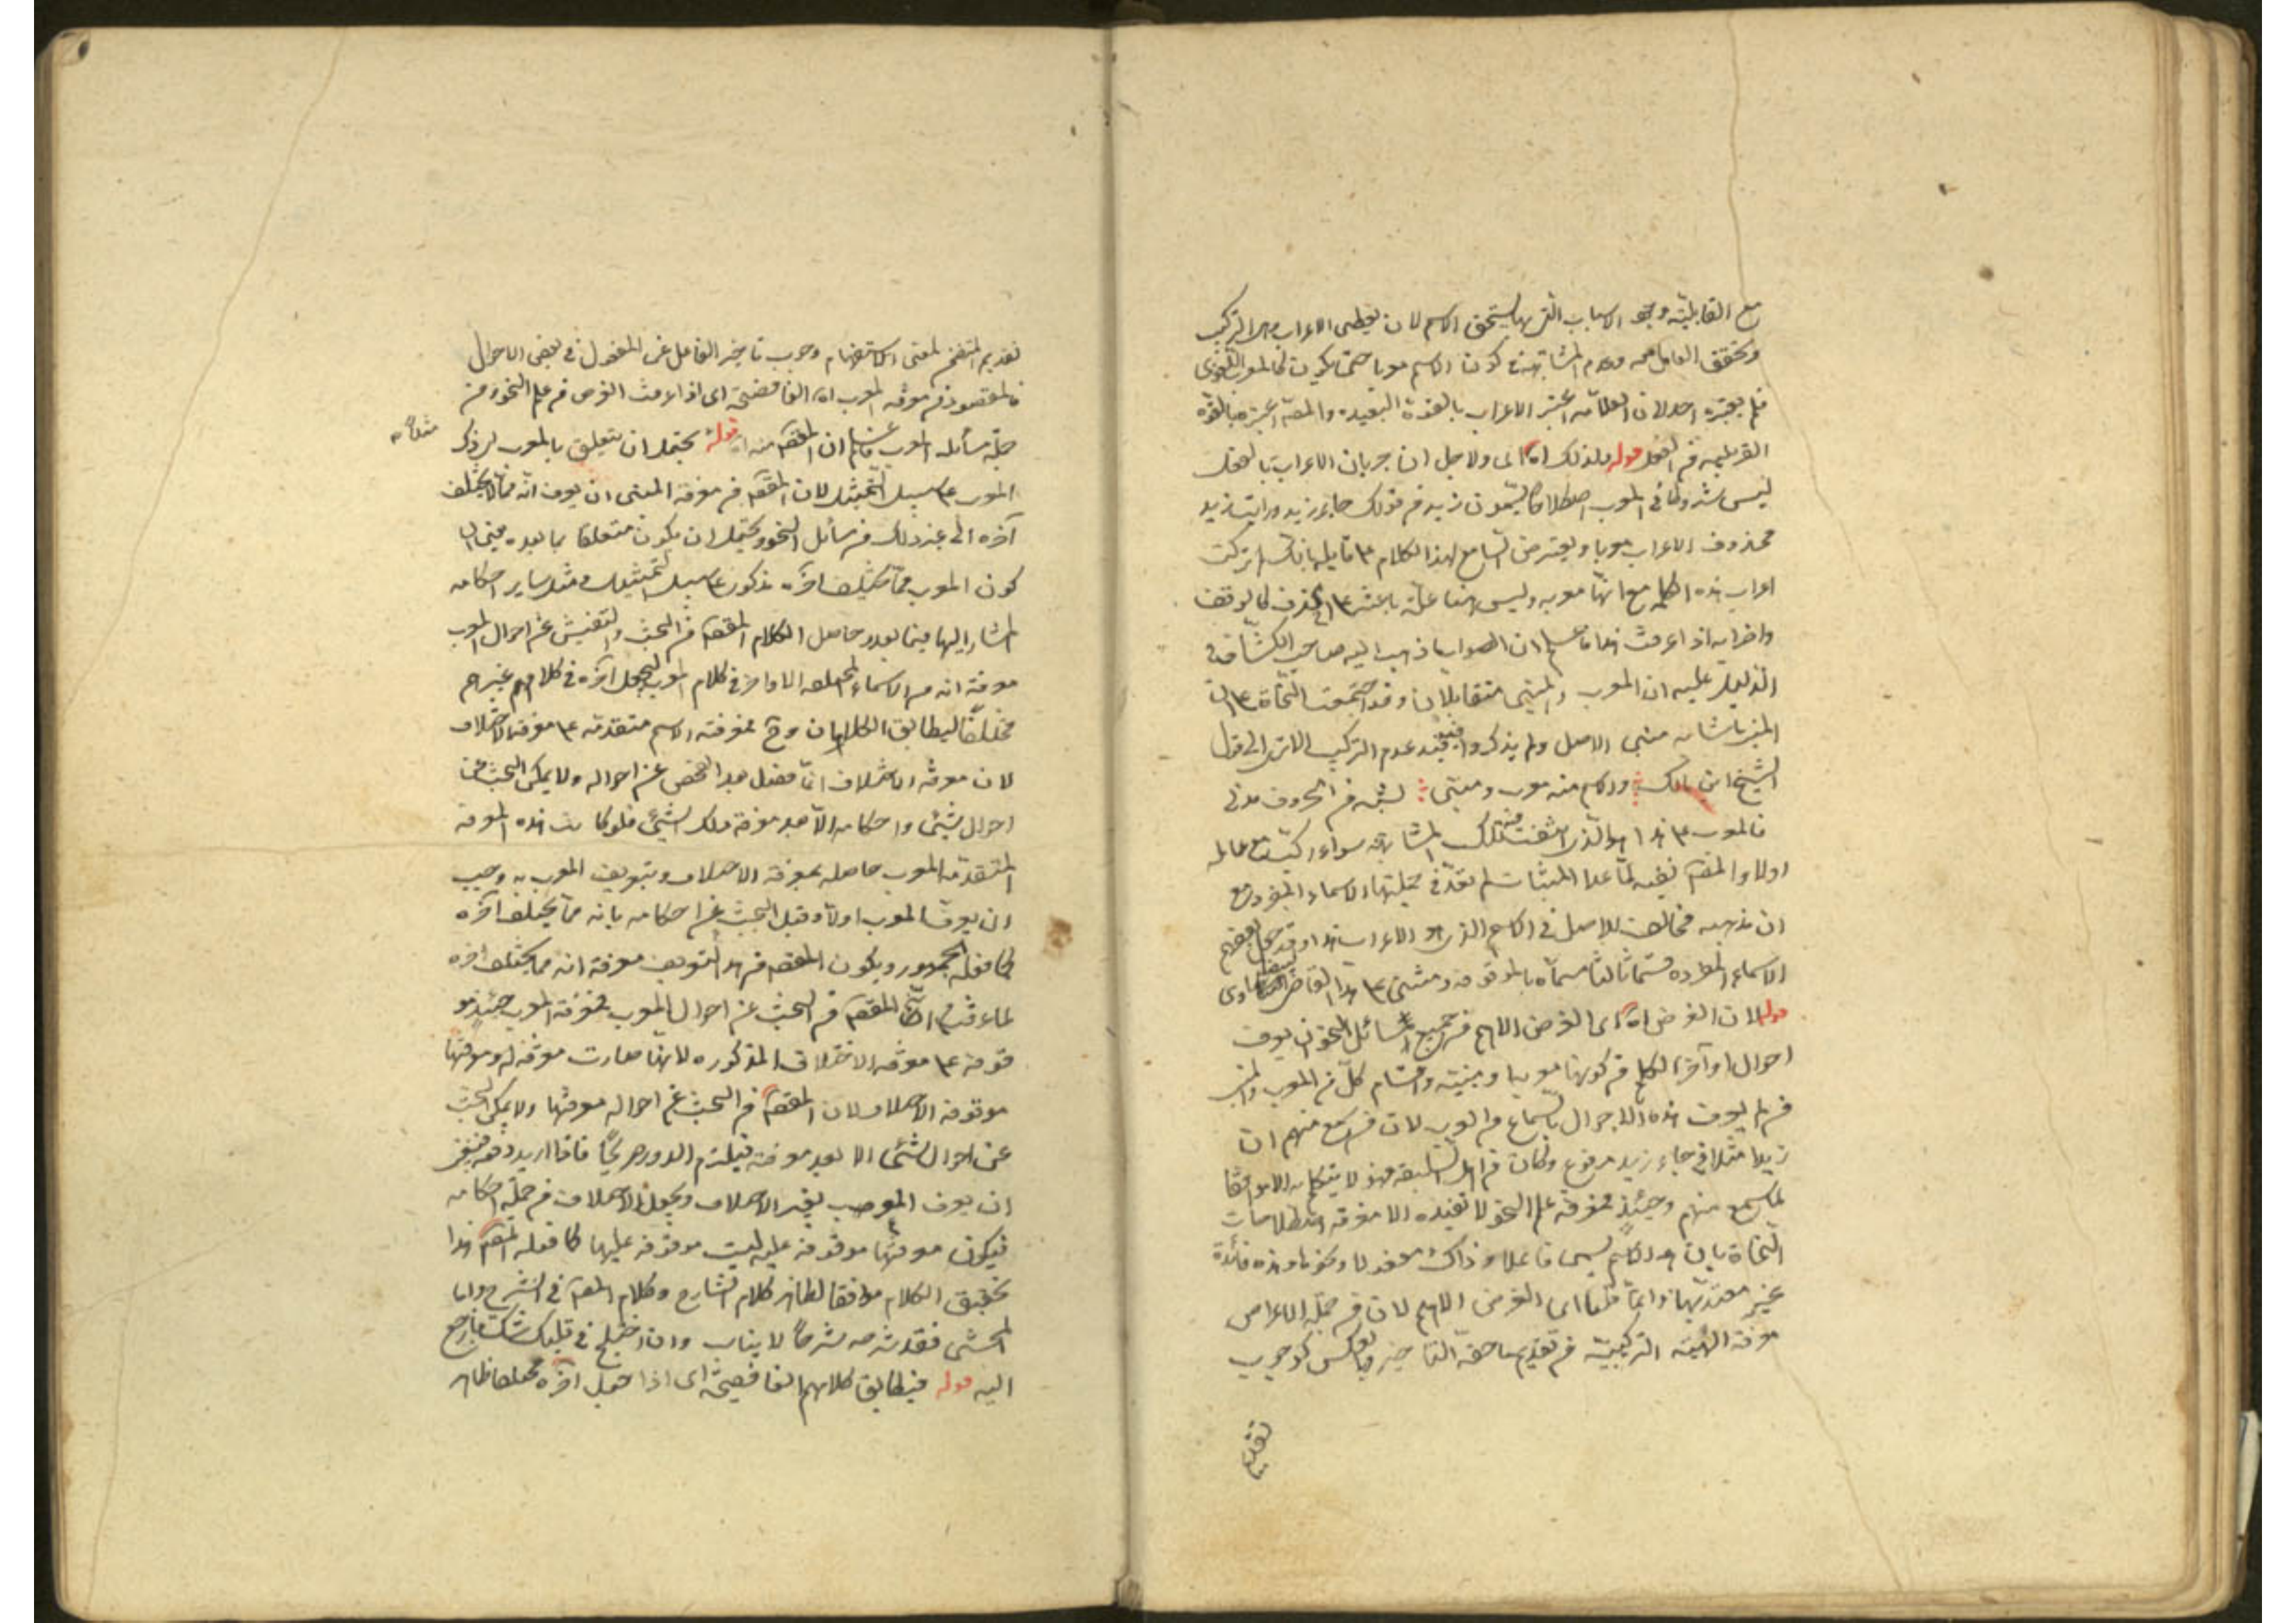 مع القابلية وجود الاسباب التى بها يستحق الاسم لان يعطى الاعراب من التركيب
وتحقق العامل معه وعدم المشابهة فى كون الاسم معربا حتى يكون كالمعرب اللغوى
فلم يعتبره احد لان العلامة اعتبر الاعراب بالقوة البعيدة والمصنف اعتبره بالقوة
القريبة من الفعل قوله ولذلك اه اى ولاجل ان جريان الاعراب بالفعل
ليس شرطا فى المعرب اصطلاحا يسمون زيد فى قولك جاء زيد ورايت زيد
محذوف الاعراب معربا ويعترض السامع لهذا الكلام على قايله بانك لم تركت
اعراب هذه الكلمة مع انها معربة وليس هنا علة باعثة على الحذف كالوقف
واضرابه اذا عرفت هذا فاعلم ان الصواب ما ذهب اليه صاحب الكشاف
الدليل عليه ان المعرب والمبنى متقابلان وقد اجتمعت النحاة على ان
المبنى ما شابه مبنى الاصل ولم يذكروا فيه قيد عدم التركيب الا ترى الى قول
الشيخ ابن مالك والاسم منه معرب ومبنى لشبه من الحروف مدنى
فالمعرب على هذا هو الذى انتفت فيه تلك المشابهة سواء ركبت مع عامله
اولا والمصنف نفسه لما عد المبنيات لم يعد فى جملتها الاسماء المفردة مع
ان مذهبه مخالف للاصل فى الاسم الذى هو الاعراب هذا وقد جعل بعضهم
الاسماء المفردة قسما ثالثا مسماة بالموقوفة ومشى على هذا القاضى البيضاوى
قوله لان الغرض اه اى الغرض الاهم من جميع مسائل النحو ان يعرف
احوال اواخر الكلم من كونها معربة او مبنية واقسام كل من المعرب والمبنى
من لم يعرف هذه الاحوال بالسماع من العرب لان من سمع منهم ان
زيدا مثلا فى جاء زيد مرفوع وكان من اهل السليقة فهو لا يتكلم به الا موافقا
لما سمع منهم وحينئذ فمعرفة علم النحو لا تفيده الا معرفة اصطلاحات
النحاة بان هذا الاسم يسمى فاعلا وذاك مفعولا ونحوهما وهذه فائدة
غير معتد بها وانما قلنا اى الغرض الاهم لان من جملة الاغراض
معرفة الهيئة التركيبية من تقديم ما حقه التاخير وبالعكس كوجوب
تقديم
تقديم المتضمن لمعنى الاستفهام ووجوب تاخير الفاعل عن المفعول فى بعض الاحوال
فالمقصود من معرفة المعرب اه الفا فصيحة اى اذا عرفت الغرض من علم النحو ومن
جملة مسائله المعرب فاعلم ان المقصود منه اه قوله مثلا يحتمل ان يتعلق بالمعرب لى ذكر
المعرب على سبيل التمثيل لان المقصود من معرفة المبنى ان يعرف انه مما لا يختلف
آخره الى غير ذلك من مسائل النحو ويحتمل ان يكون متعلقا بما بعده فيعنى ان
كون المعرب مما يختلف آخره مذكور على سبيل التمثيل ومثله ساير احكامه
المشار اليها فيما بعد وحاصل الكلام المقصود من البحث والتفتيش عن احوال المعرب
معرفة انه من الاسماء المختلفة الاواخر فى كلام العرب ليجعل آخره فى كلام غيرهم
مختلفا ليطابق الكلامان وح فمعرفة الاسم متقدمة على معرفة الاختلاف
لان معرفة الاختلاف انما تحصل بعد الفحص عن احواله ولا يمكن البحث عن
احوال شيئ واحكامه الا بعد معرفة ذلك الشيئ فلو كانت هذه المعرفة
المتقدمة للمعرب حاصلة بمعرفة الاختلاف وبتعريف المعرب به وجب
ان يعرف المعرب اولا وقبل البحث عن احكامه بانه مما يختلف آخره
كما فعله الجمهور ويكون المقصود من هذا التعريف معرفة انه مما يختلف آخره
لما عرفت ان المقصود من البحث عن احوال المعرب فمعرفة المعرب حينئذ مو
قوفة على معرفة الاختلاف المذكورة لانها صارت معرفة له ومعرفتها
موقوفة الاختلاف لان المقصود من البحث عن احواله معرفتها ولا يمكن البحث
عن احوال الشئى الا بعد معرفته فيلزم الدور صريحا فاذا اريد دفعه فينبغى
ان يعرف المعرب بغير الاختلاف ويجعل الاختلاف من جملة احكامه
فيكون معرفتها موقوفة عليه وليست موقوفة عليها كما فعله المصنف هذا
تحقيق الكلام موافقا لظاهر كلام الشارح وكلام المصنف فى الشرح واما
المحشى فقد شرحه شرحا لا يناسب وان اختلج فى قلبك شك فارجع
اليه قوله فيطابق كلامهم الفا فصيحة اى اذا جعل آخره مختلفا ظاهر